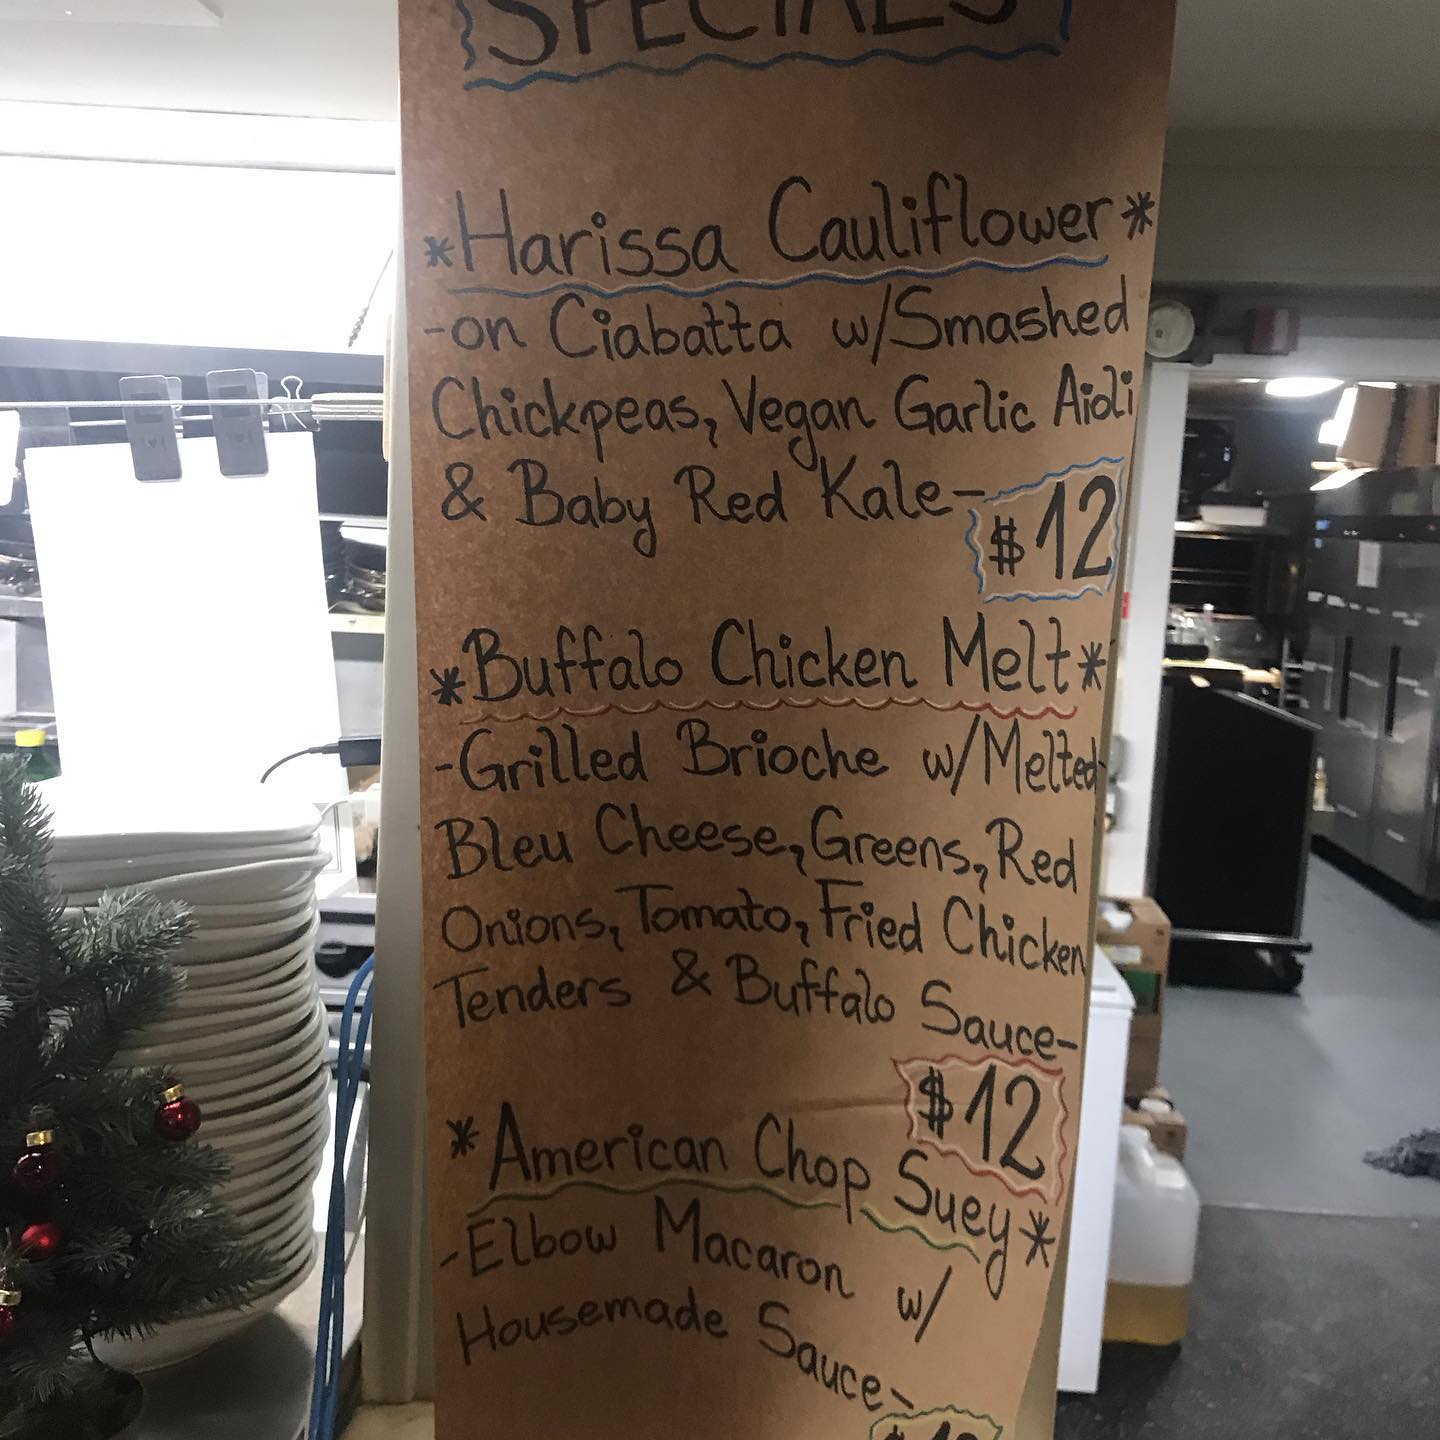 SPECIALS
*Harissa Cauliflower*
-on Ciabatta w/Smashed
Chickpeas, Vegan Garlic Aioli
& Baby Red Kale-
$12
*Buffalo Chicken Melt*
-Grilled Brioche w/Melted
Bleu Cheese, Greens, Red
Onions, Tomato, Fried Chicken
Tenders & Buffalo Sauce-
$12
*American Chop Suey*
-Elbow Macaron w/
Housemade Sauce-